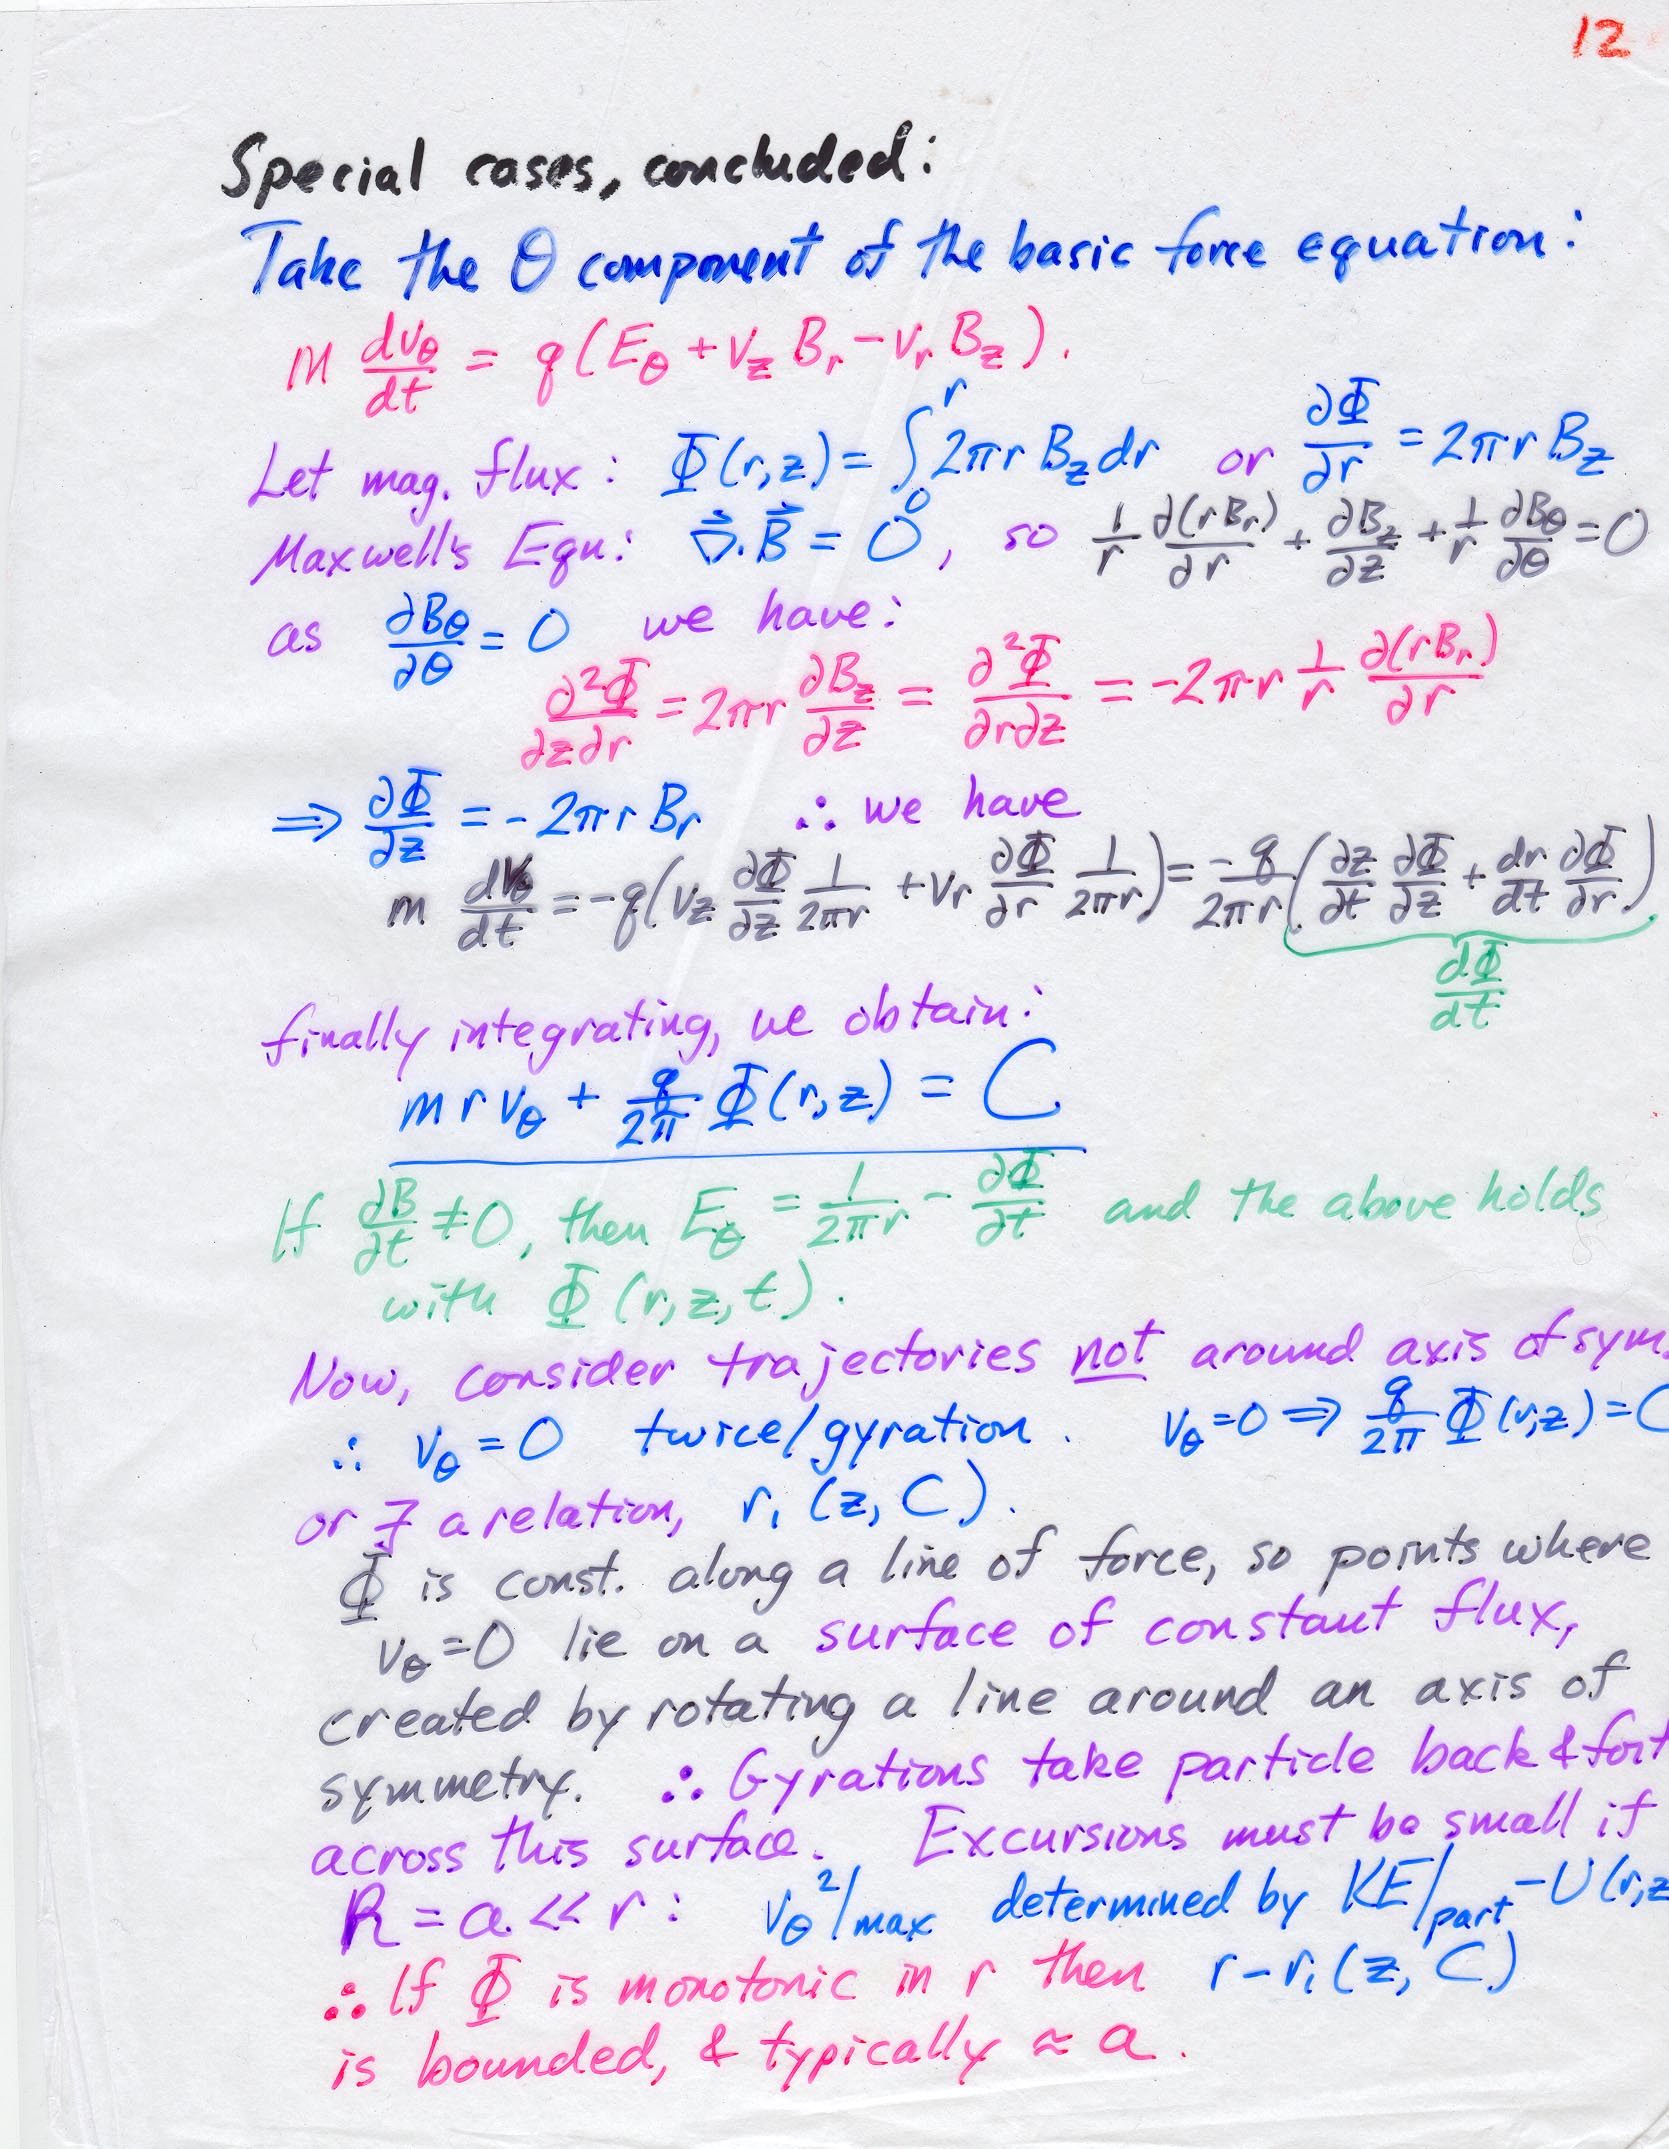 12
Special cases, concluded:
Take the θ component of the basic force equation:
m dvθ/dt = q(Eθ + vz Br - vr Bz).
Let mag. flux: Φ(r,z) = ∫₀ʳ 2πr Bz dr or ∂Φ/∂r = 2πr Bz
Maxwell's Equ: ∇⃗·B⃗ = 0, so 1/r ∂(rBr)/∂r + ∂Bz/∂z + 1/r ∂Bθ/∂θ = 0
as ∂Bθ/∂θ = 0 we have:
∂²Φ/∂z∂r = 2πr ∂Bz/∂z = ∂²Φ/∂r∂z = -2πr 1/r ∂(rBr)/∂r
⇒ ∂Φ/∂z = -2πr Br ∴ we have
m dvθ/dt = -q(vz ∂Φ/∂z 1/2πr + vr ∂Φ/∂r 1/2πr) = -q/2πr (∂z/∂t ∂Φ/∂z + dr/dt ∂Φ/∂r)
dΦ/dt
finally integrating, we obtain:
m r vθ + q/2π Φ(r,z) = C
If ∂B/∂t ≠ 0, then Eθ = 1/2πr - ∂Φ/∂t and the above holds
with Φ(r,z,t).
Now, consider trajectories not around axis of sym.
∴ vθ = 0 twice/gyration. vθ = 0 ⇒ q/2π Φ(r,z) = C
or ∃ a relation, r₁(z, C).
Φ is const. along a line of force, so points where
vθ = 0 lie on a surface of constant flux,
created by rotating a line around an axis of
symmetry. ∴ Gyrations take particle back & fort
across this surface. Excursions must be small if
R = a << r: vθ²|max determined by KE|part - U(r,z
∴ If Φ is monotonic in r then r - r₁(z, C)
is bounded, & typically ≈ a.